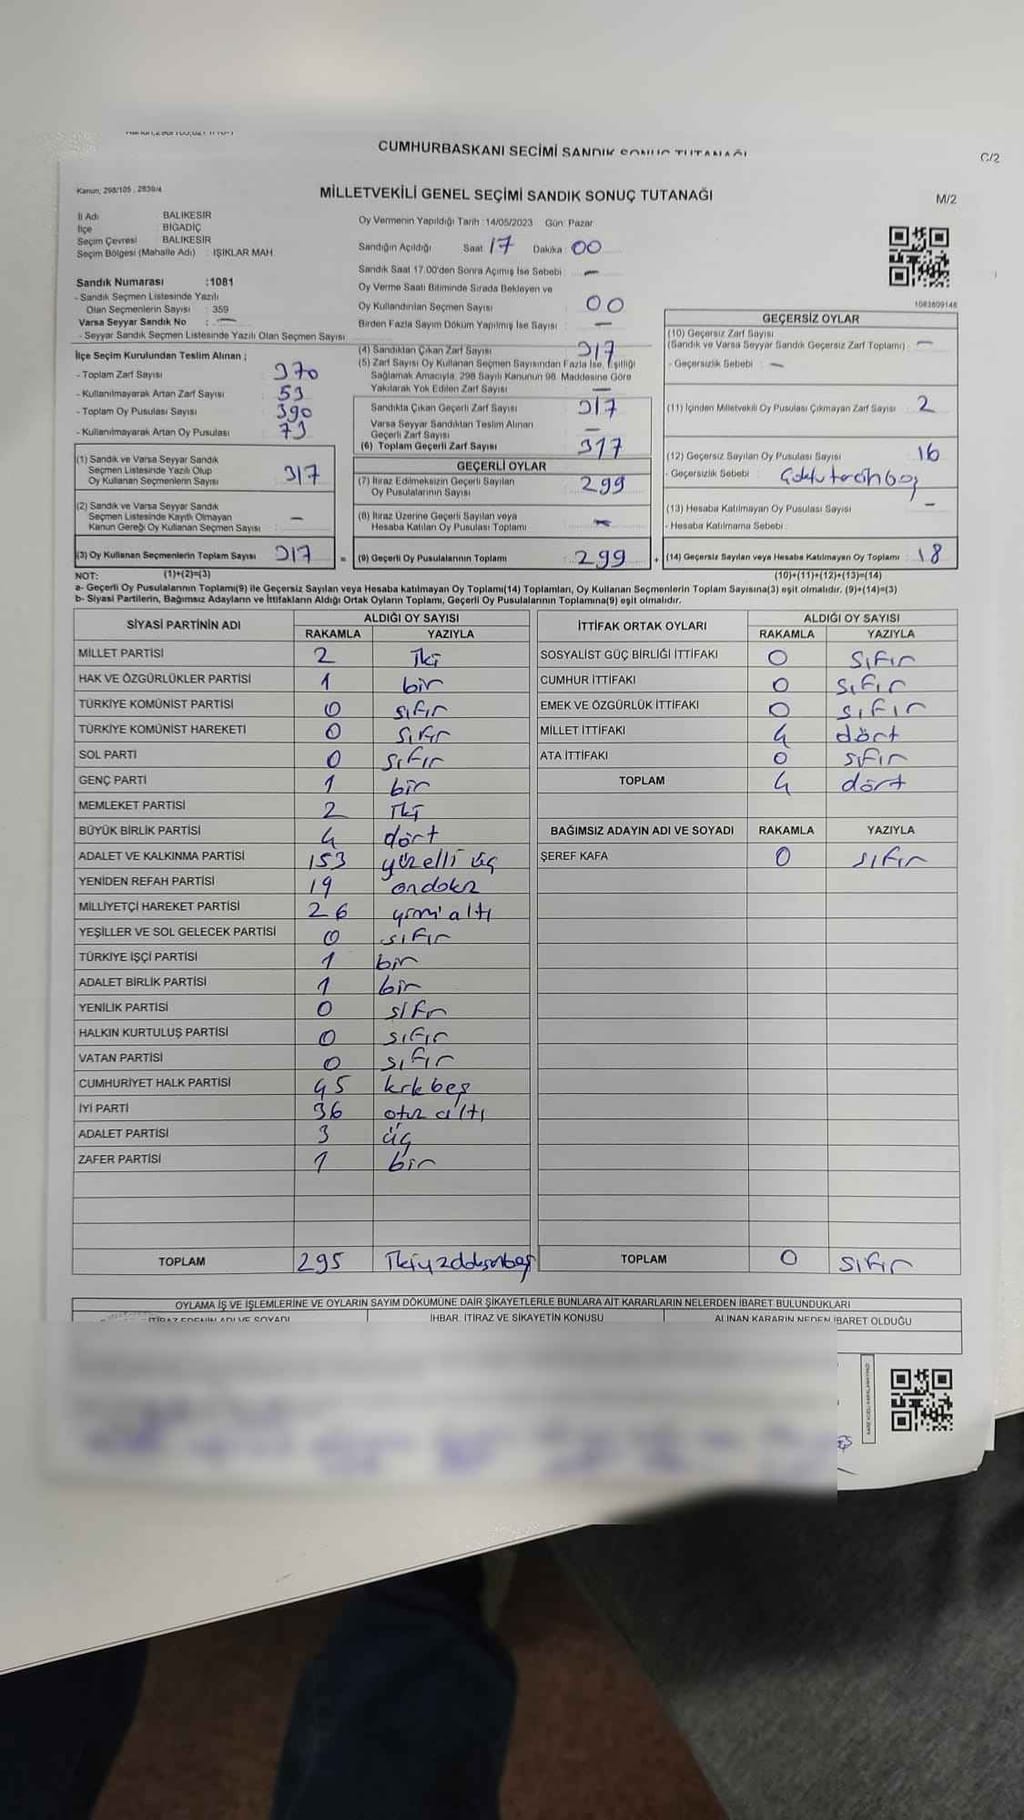 CUMHURBAŞKANI SEÇİMİ SANDIK SONUÇ TUTANAĞI
C/2
Kanun; 298/105 , 2839/4
MİLLETVEKİLİ GENEL SEÇİMİ SANDIK SONUÇ TUTANAĞI
M/2
İl Adı BALIKESİR
İlçe BİGADİÇ
Seçim Çevresi BALIKESİR
Seçim Bölgesi (Mahalle Adı) : IŞIKLAR MAH
Oy Vermenin Yapıldığı Tarih :14/05/2023 Gün: Pazar
Sandığın Açıldığı Saat 17 Dakika 00
Sandık Saat 17.00'den Sonra Açımış İse Sebebi —
Oy Verme Saati Bitiminde Sırada Bekleyen ve
Oy Kullandırılan Seçmen Sayısı 00
Birden Fazla Sayım Döküm Yapılmış İse Sayısı —
1083609146
Sandık Numarası :1081
- Sandık Seçmen Listesinde Yazılı
Olan Seçmenlerin Sayısı : 359
Varsa Seyyar Sandık No : —
- Seyyar Sandık Seçmen Listesinde Yazılı Olan Seçmen Sayısı
İlçe Seçim Kurulundan Teslim Alınan ;
- Toplam Zarf Sayısı 370
- Kullanılmayarak Artan Zarf Sayısı 53
- Toplam Oy Pusulası Sayısı 390
- Kullanılmayarak Artan Oy Pusulası 73
(1) Sandık ve Varsa Seyyar Sandık
Seçmen Listesinde Yazılı Olup
Oy Kullanan Seçmenlerin Sayısı 317
(2) Sandık ve Varsa Seyyar Sandık
Seçmen Listesinde Kayıtlı Olmayan
Kanun Gereği Oy Kullanan Seçmen Sayısı —
(3) Oy Kullanan Seçmenlerin Toplam Sayısı 317
(4) Sandıktan Çıkan Zarf Sayısı 317
(5) Zarf Sayısı Oy Kullanan Seçmen Sayısından Fazla İse, Eşitliği
Sağlamak Amacıyla, 298 Sayılı Kanunun 98. Maddesine Göre
Yakılarak Yok Edilen Zarf Sayısı —
Sandıkta Çıkan Geçerli Zarf Sayısı 317
Varsa Seyyar Sandıktan Teslim Alınan
Geçerli Zarf Sayısı —
(6) Toplam Geçerli Zarf Sayısı 317
GEÇERLİ OYLAR
(7) İtiraz Edilmeksizin Geçerli Sayılan
Oy Pusulalarının Sayısı 299
(8) İtiraz Üzerine Geçerli Sayılan veya
Hesaba Katılan Oy Pusulası Toplamı —
= (9) Geçerli Oy Pusulalarının Toplamı 299
GEÇERSİZ OYLAR
(10) Geçersiz Zarf Sayısı
(Sandık ve Varsa Seyyar Sandık Geçersiz Zarf Toplamı) : —
- Geçersizlik Sebebi : —
(11) İçinden Milletvekili Oy Pusulası Çıkmayan Zarf Sayısı 2
(12) Geçersiz Sayılan Oy Pusulası Sayısı 16
- Geçersizlik Sebebi
(13) Hesaba Katılmayan Oy Pusulası Sayısı —
- Hesaba Katılmama Sebebi :
+ (14) Geçersiz Sayılan veya Hesaba Katılmayan Oy Toplamı : 18
NOT: (1)+(2)=(3) (10)+(11)+(12)+(13)=(14)
a- Geçerli Oy Pusulalarının Toplamı(9) ile Geçersiz Sayılan veya Hesaba katılmayan Oy Toplamı(14) Toplamları, Oy Kullanan Seçmenlerin Toplam Sayısına(3) eşit olmalıdır. (9)+(14)=(3)
b- Siyasi Partilerin, Bağımsız Adayların ve İttifakların Aldığı Ortak Oyların Toplamı, Geçerli Oy Pusulalarının Toplamına(9) eşit olmalıdır.
SİYASİ PARTİNİN ADI ALDIĞI OY SAYISI
RAKAMLA YAZIYLA
MİLLET PARTİSİ 2 İki
HAK VE ÖZGÜRLÜKLER PARTİSİ 1 bir
TÜRKİYE KOMÜNİST PARTİSİ 0 sıfır
TÜRKİYE KOMÜNİST HAREKETİ 0 sıfır
SOL PARTİ 0 sıfır
GENÇ PARTİ 1 bir
MEMLEKET PARTİSİ 2 İki
BÜYÜK BİRLİK PARTİSİ 4 dört
ADALET VE KALKINMA PARTİSİ 153 yüzelli üç
YENİDEN REFAH PARTİSİ 19 ondokz
MİLLİYETÇİ HAREKET PARTİSİ 26 yirmi altı
YEŞİLLER VE SOL GELECEK PARTİSİ 0 sıfır
TÜRKİYE İŞÇİ PARTİSİ 1 bir
ADALET BİRLİK PARTİSİ 1 bir
YENİLİK PARTİSİ 0 sıfır
HALKIN KURTULUŞ PARTİSİ 0 sıfır
VATAN PARTİSİ 0 sıfır
CUMHURİYET HALK PARTİSİ 45 kırkbeş
İYİ PARTİ 36 otuz altı
ADALET PARTİSİ 3 üç
ZAFER PARTİSİ 1 bir
TOPLAM 295 İkiyüzdoksanbeş
İTTİFAK ORTAK OYLARI ALDIĞI OY SAYISI
RAKAMLA YAZIYLA
SOSYALİST GÜÇ BİRLİĞİ İTTİFAKI 0 sıfır
CUMHUR İTTİFAKI 0 sıfır
EMEK VE ÖZGÜRLÜK İTTİFAKI 0 sıfır
MİLLET İTTİFAKI 4 dört
ATA İTTİFAKI 0 sıfır
TOPLAM 4 dört
BAĞIMSIZ ADAYIN ADI VE SOYADI RAKAMLA YAZIYLA
ŞEREF KAFA 0 sıfır
TOPLAM 0 sıfır
OYLAMA İŞ VE İŞLEMLERİNE VE OYLARIN SAYIM DÖKÜMÜNE DAİR ŞİKAYETLERLE BUNLARA AİT KARARLARIN NELERDEN İBARET BULUNDUKLARI
İTİRAZ EDENİN ADI VE SOYADI İHBAR, İTİRAZ VE ŞİKAYETİN KONUSU ALINAN KARARIN NEDEN İBARET OLDUĞU